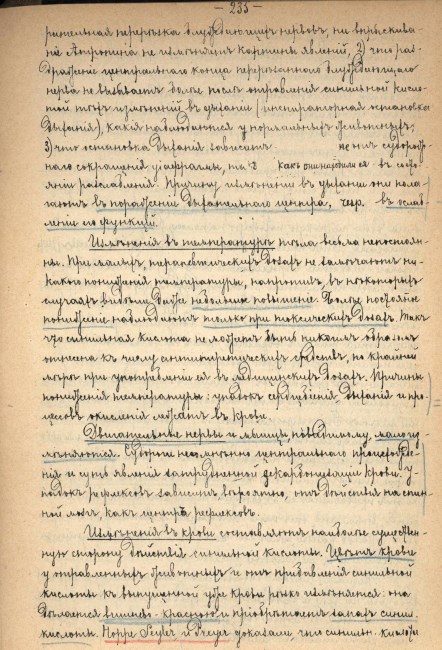 — 235 —
рительная перерѣзка блуждающихъ нервовъ, ни впрыскива-
нiе Атропина не измѣняютъ картины явленiй, 2) что раз-
драженiе центральнаго конца перерѣзаннаго блуждающаго
нерва не вызываетъ болѣе послѣ отравленiя синильной кисло-
той тѣхъ измѣненiй въ дыханiи (инспираторная остановка
дыханiя), какiя наблюдаются у нормальныхъ животныхъ;
3) что остановка дыханiя зависитъ не отъ судорож-
наго сокращенiя дiафрагмы, та какъ она находилась въ состо-
янiи разслабленiя. Причину измѣненiй въ дыханiи они пола-
гаютъ въ пораженiи дыхательнаго центра, въ ослаб-
ленiи его функцiй.
Измѣненiя въ температурѣ тѣла весьма непостоян-
ны. При малыхъ, терапевтическихъ дозахъ не замѣчаютъ ни-
какого пониженiя температуры, напротивъ, въ нѣкоторыхъ
случаяхъ видѣли даже небольшое повышенiе. Болѣе постоянно
пониженiе наблюдаютъ только при токсическихъ дозахъ. Такъ
что синильная кислота не можетъ быть никоимъ образомъ
отнесена къ числу антипиретическихъ средствъ, по крайней
мѣрѣ при употребленiи ея въ медицинскихъ дозахъ. Причины
пониженiя температуры: упадокъ сердцебiенiя, дыханiя и про-
цессовъ окисленiя въ крови.
Двигательные нервы и мышцы, повидимому, мало из-
мѣняются. Судороги несомнѣнно центральнаго происхожде-
нiя и суть явленiя затрудненной декарбонизацiи крови. У-
падокъ рефлексовъ зависитъ, вѣроятно, отъ дѣйствiя на спин-
ной мозгъ, какъ центръ рефлексовъ.
Измѣненiя въ крови составляютъ наиболѣе существен-
ную сторону дѣйствiя синильной кислоты. Цвѣтъ крови
у отравленныхъ животныхъ и отъ прибавленiя синильной
кислоты къ выпущенной уже крови рѣзко измѣняется: она
дѣлается вишнево-красною и прiобрѣтаетъ запахъ синил.
кислоты. Hoppe Seyler и Preyer доказали, что синильн. кислота